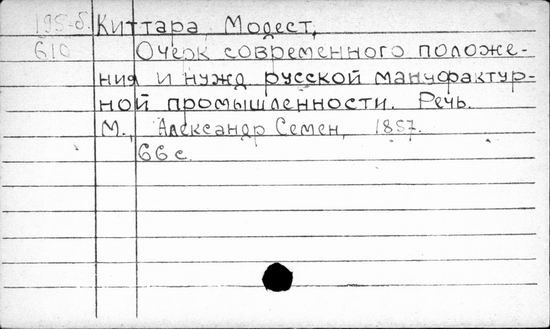 195-б. Киттара, Модест,
610 Очерк современного положе-
ния и нужд русской мануфактур-
ной промышленности. Речь.
М., Александр Семен, 1857.
66 с.